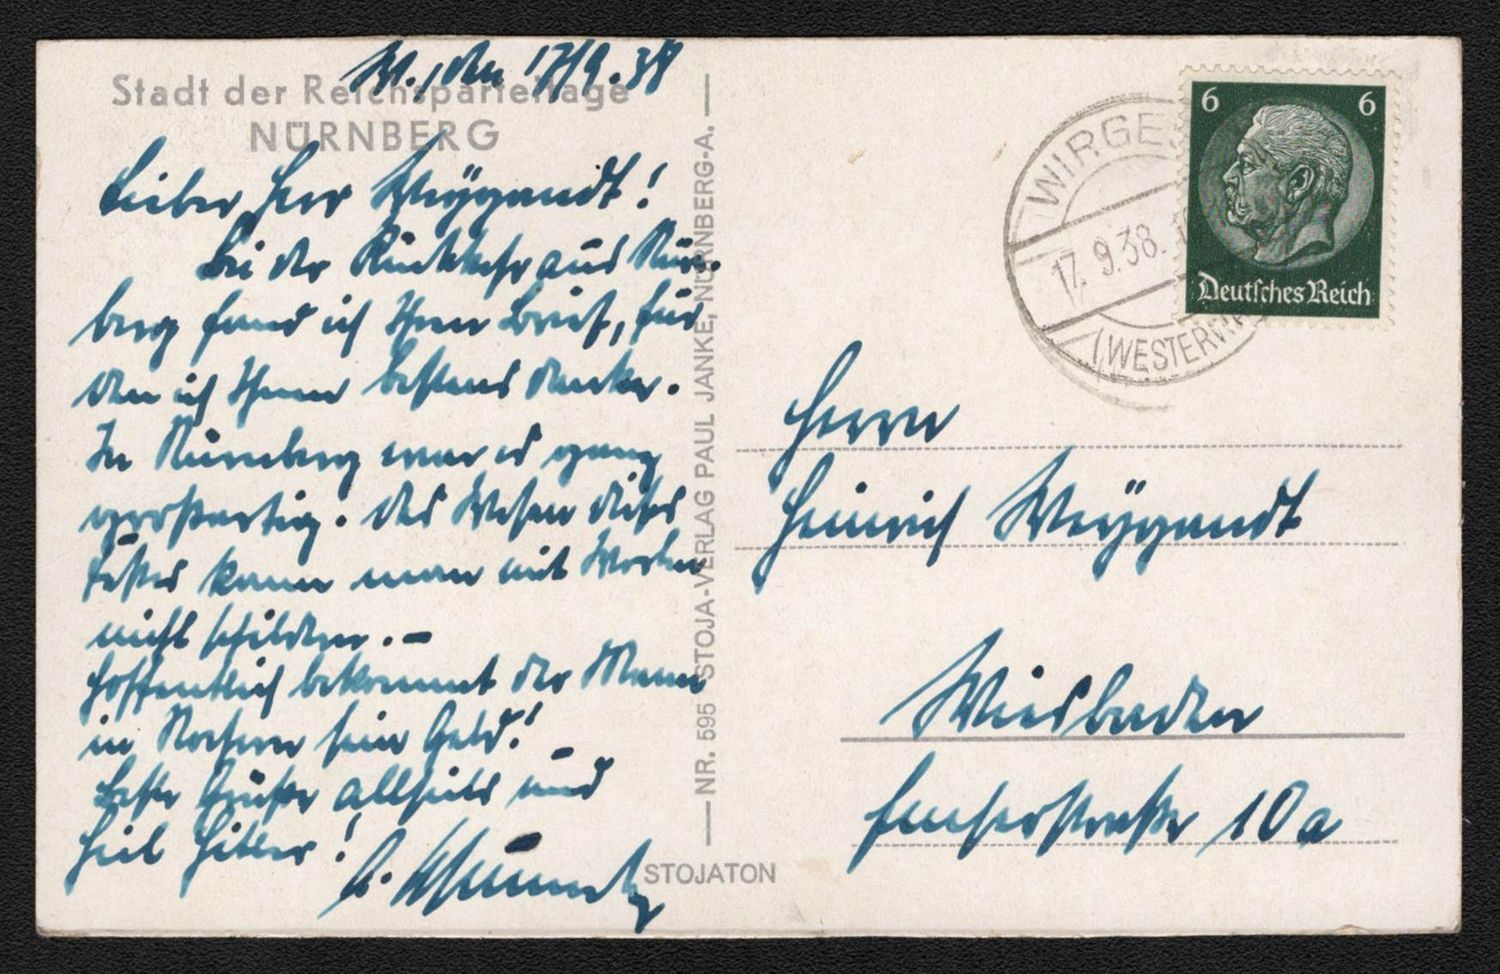 W., den 17/9.38
Stadt der Reichsparteitage
NÜRNBERG
Lieber Herr Weÿgandt!
Bei der Rückkehr aus Nürn-
berg fand ich Ihren Brief, für
den ich Ihnen bestens danke.
In Nürnberg war es ganz
großartig. Das Wesen dieses
Festes kann man mit Worten
nicht schildern. –
Hoffentlich bekommt der Mann
in sein Geld!
Beste Grüße allseits und
Heil Hitler!
NR. 595 STOJA-VERLAG PAUL JANKE, NÜRNBERG-A.
STOJATON
WIRGES
17.9.38.
(WESTERW
6 6
Deutsches Reich
Herrn
Heinrich Weÿgandt
Wiesbaden
Emserstraße 10a